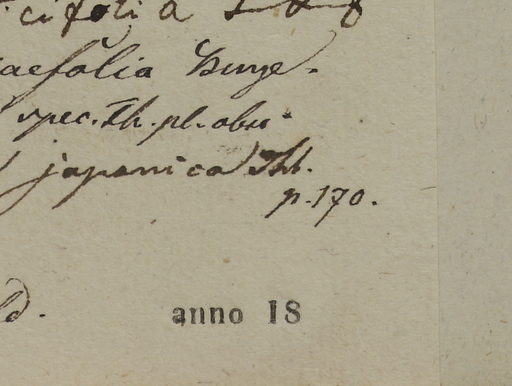 icifolia
aefolia Bunge.
spec. Th. pl. obs.
japonica Thb.
p. 170.
d.
anno 18